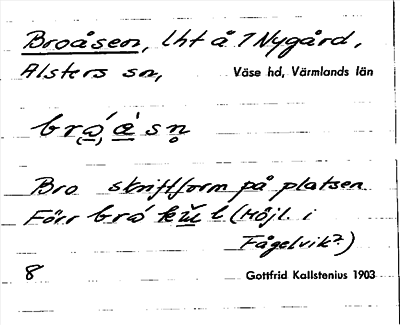 Broåsen, lht å 7 Nygård,
Alsters sn, Väse hd, Värmlands län
br(a)́á́sṇ
Bro skriftform på platsen
Förr brá kŭl (Höjl. i
Fågelvik?)
8 Gottfrid Kallstenius 1903